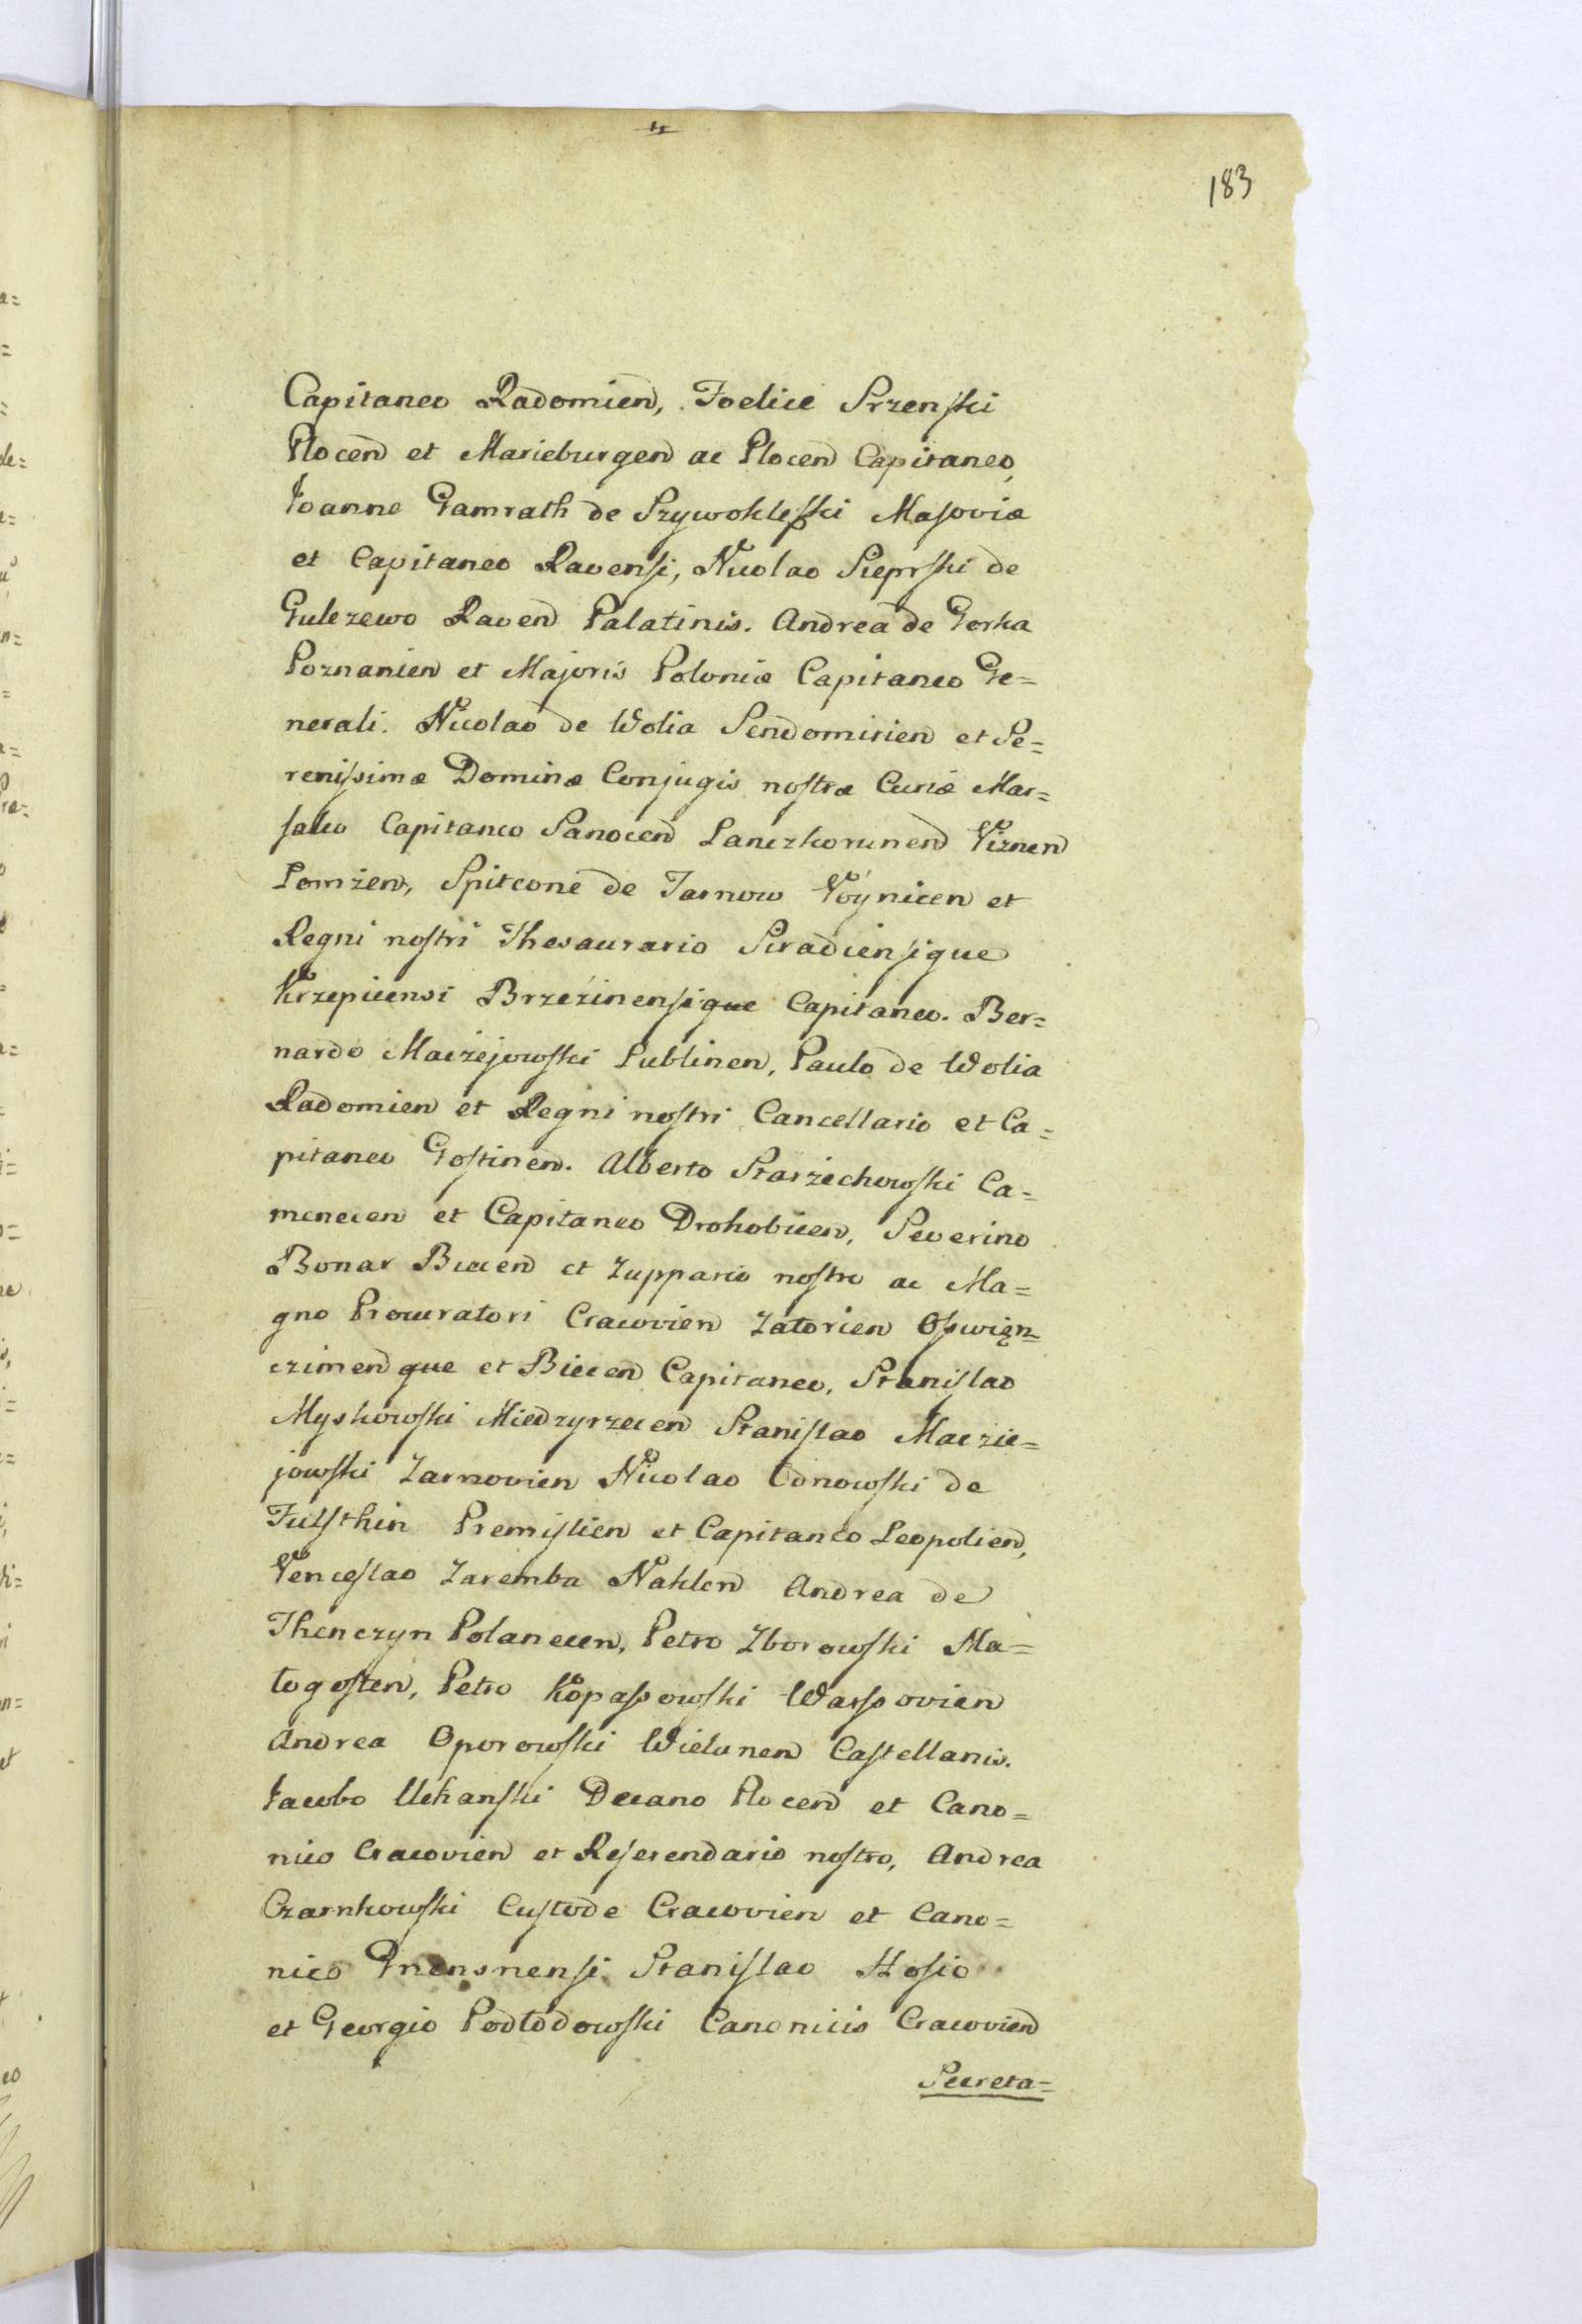 183
Capitaneo Radomien, Foelice Srzenski
Plocen et Marieburgen ac Plocen Capitaneo,
Joanne Gamrath de Szywokleski Masoviæ
et Capitaneo Ravensi, Nicolao Sieprski de
Gulczewo Raven Palatinis. Andrea de Gorka
Poznanien et Majoris Poloniæ Capitaneo Ge=
nerali. Nicolao de Wolia Sendomirien et Se=
renissimæ Dominæ Conjugis nostræ Curiæ Mar=
salco Capitaneo Sanocen Lanczkorunen Viznen
Lomzen, Spitcone de Tarnow Voynicen et
Regni nostri Thesaurario Siradiensique
Krzepicensi Brzezinensique Capitaneo. Ber=
nardo Maciejowski Lublinen, Paulo de Wolia
Radomien et Regni nostri Cancellario et Ca=
pitaneo Gostinen. Alberto Starzechowski Ca=
menecen et Capitaneo Drohobicen, Severino
Bonar Biecen et Zuppario nostro ac Ma=
gno Procuratori Cracovien Zatorien Oswięn=
czimenque et Biecen Capitaneo, Stanislao
Myskowski Miedzyrzecen Stanislao Maczie=
jowski Zarnovien Nicolao Odnowski de
Fulsthin Premislien et Capitaneo Leopolien,
Venceslao Zaremba Naklen Andrea de
Thenczyn Polanecen, Petro Zborowski Ma=
logosten, Petro Kopassowski Warssovien
Andrea Oporowski Wielunen Castellanis.
Jacobo Uchanski Decano Plocen et Cano=
nico Cracovien et Referendario nostro, Andrea
Czarnkowski Custode Cracovien et Cano=
nico Gnensnensi Stanislao Hosio
et Georgio Podlodowski Canonicis Cracovien
Secreta=